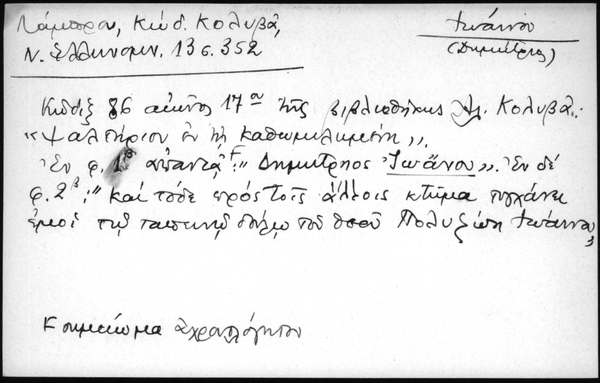 Λάμπρου, Κώδ. Κολυβᾶ,
Ν. Ἑλληνομν. 13 σ. 352
Ἰωάννου
(Δημήτριος)
Κῶδιξ 86 αἰῶνος 17ου τῆς βιβλιοθήκης Ἀλ. Κολυβᾶ:
«Ψαλτήριον ἐν τῇ καθωμιλημένῃ».
Ἐν φ. ἀπαντᾷ: "Δημητρηος Ἰωάνου". Ἐν δέ
φ. 2β: "καὶ τόδε πρὸς τοῖς ἄλλοις κτῆμα τυγχάνει
ἐμοὶ τῷ ταπεινῷ δούλῳ τοῦ Θεοῦ Πολυζώῃ Ἰωάννου
σημείωμα ἀχρονολόγητον